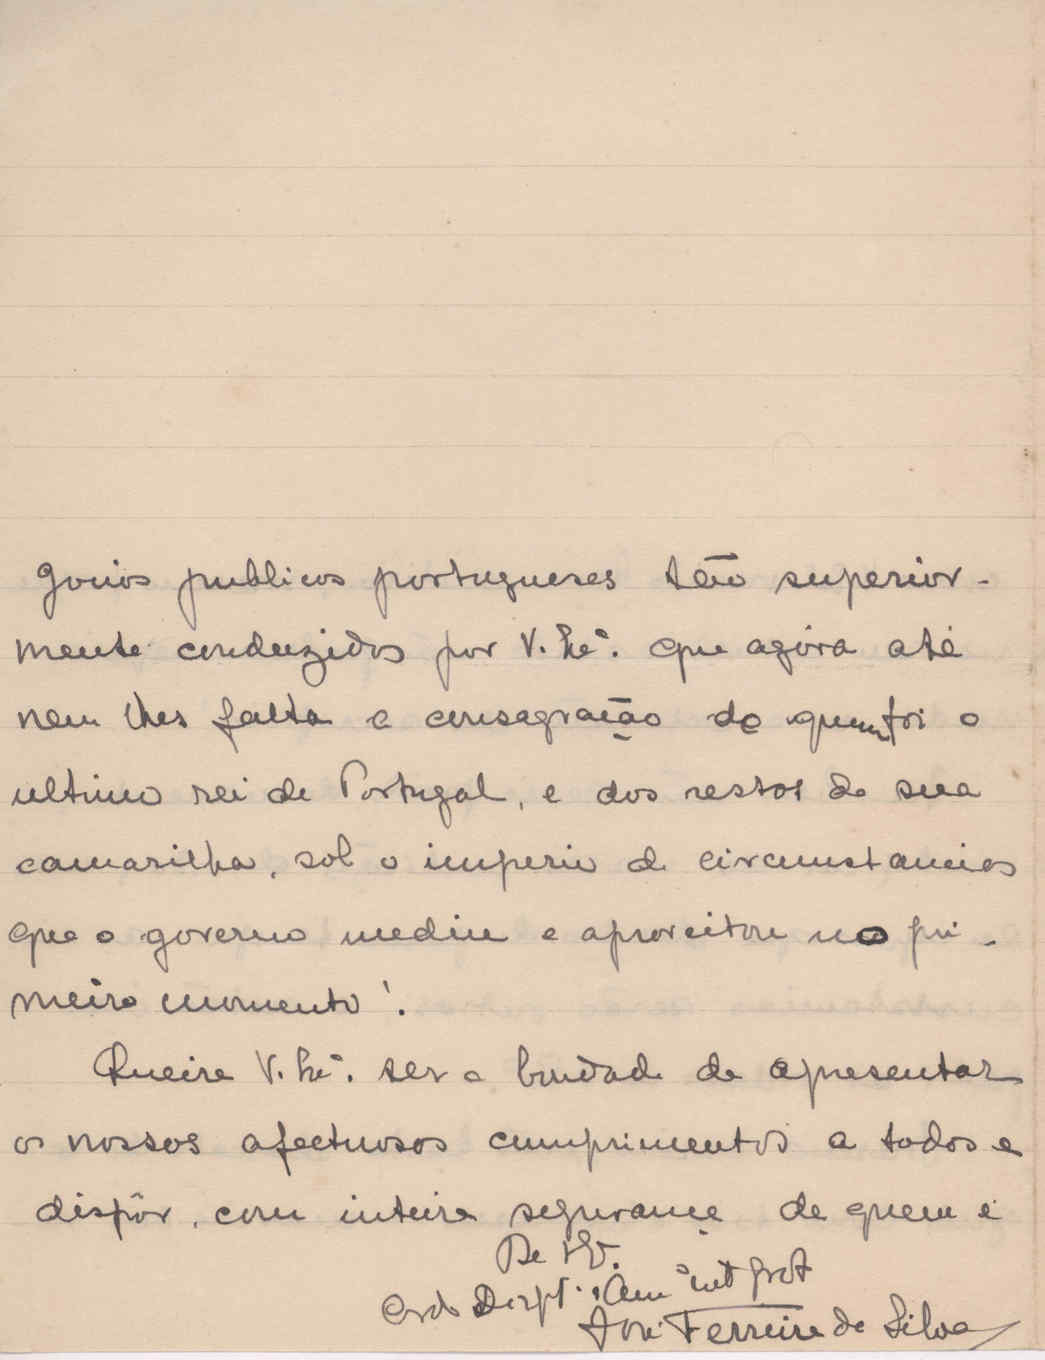 gocios publicos portugueses tão superior-
mente conduzidos por V. Exª. que agóra até
nem lhes falta a consagração de quem foi o
ultimo rei de Portugal, e dos restos de sua
camarilha, sob o imperio de circumstancias
que o governo mediu e aproveitou no pri-
meiro momento!.
Queira V. Exª. ser a bondade de apresentar
os nossos afectuosos cumprimentos a todos e
dispôr, com inteira segurança de quem é
De V.
José Ferreira da Silva